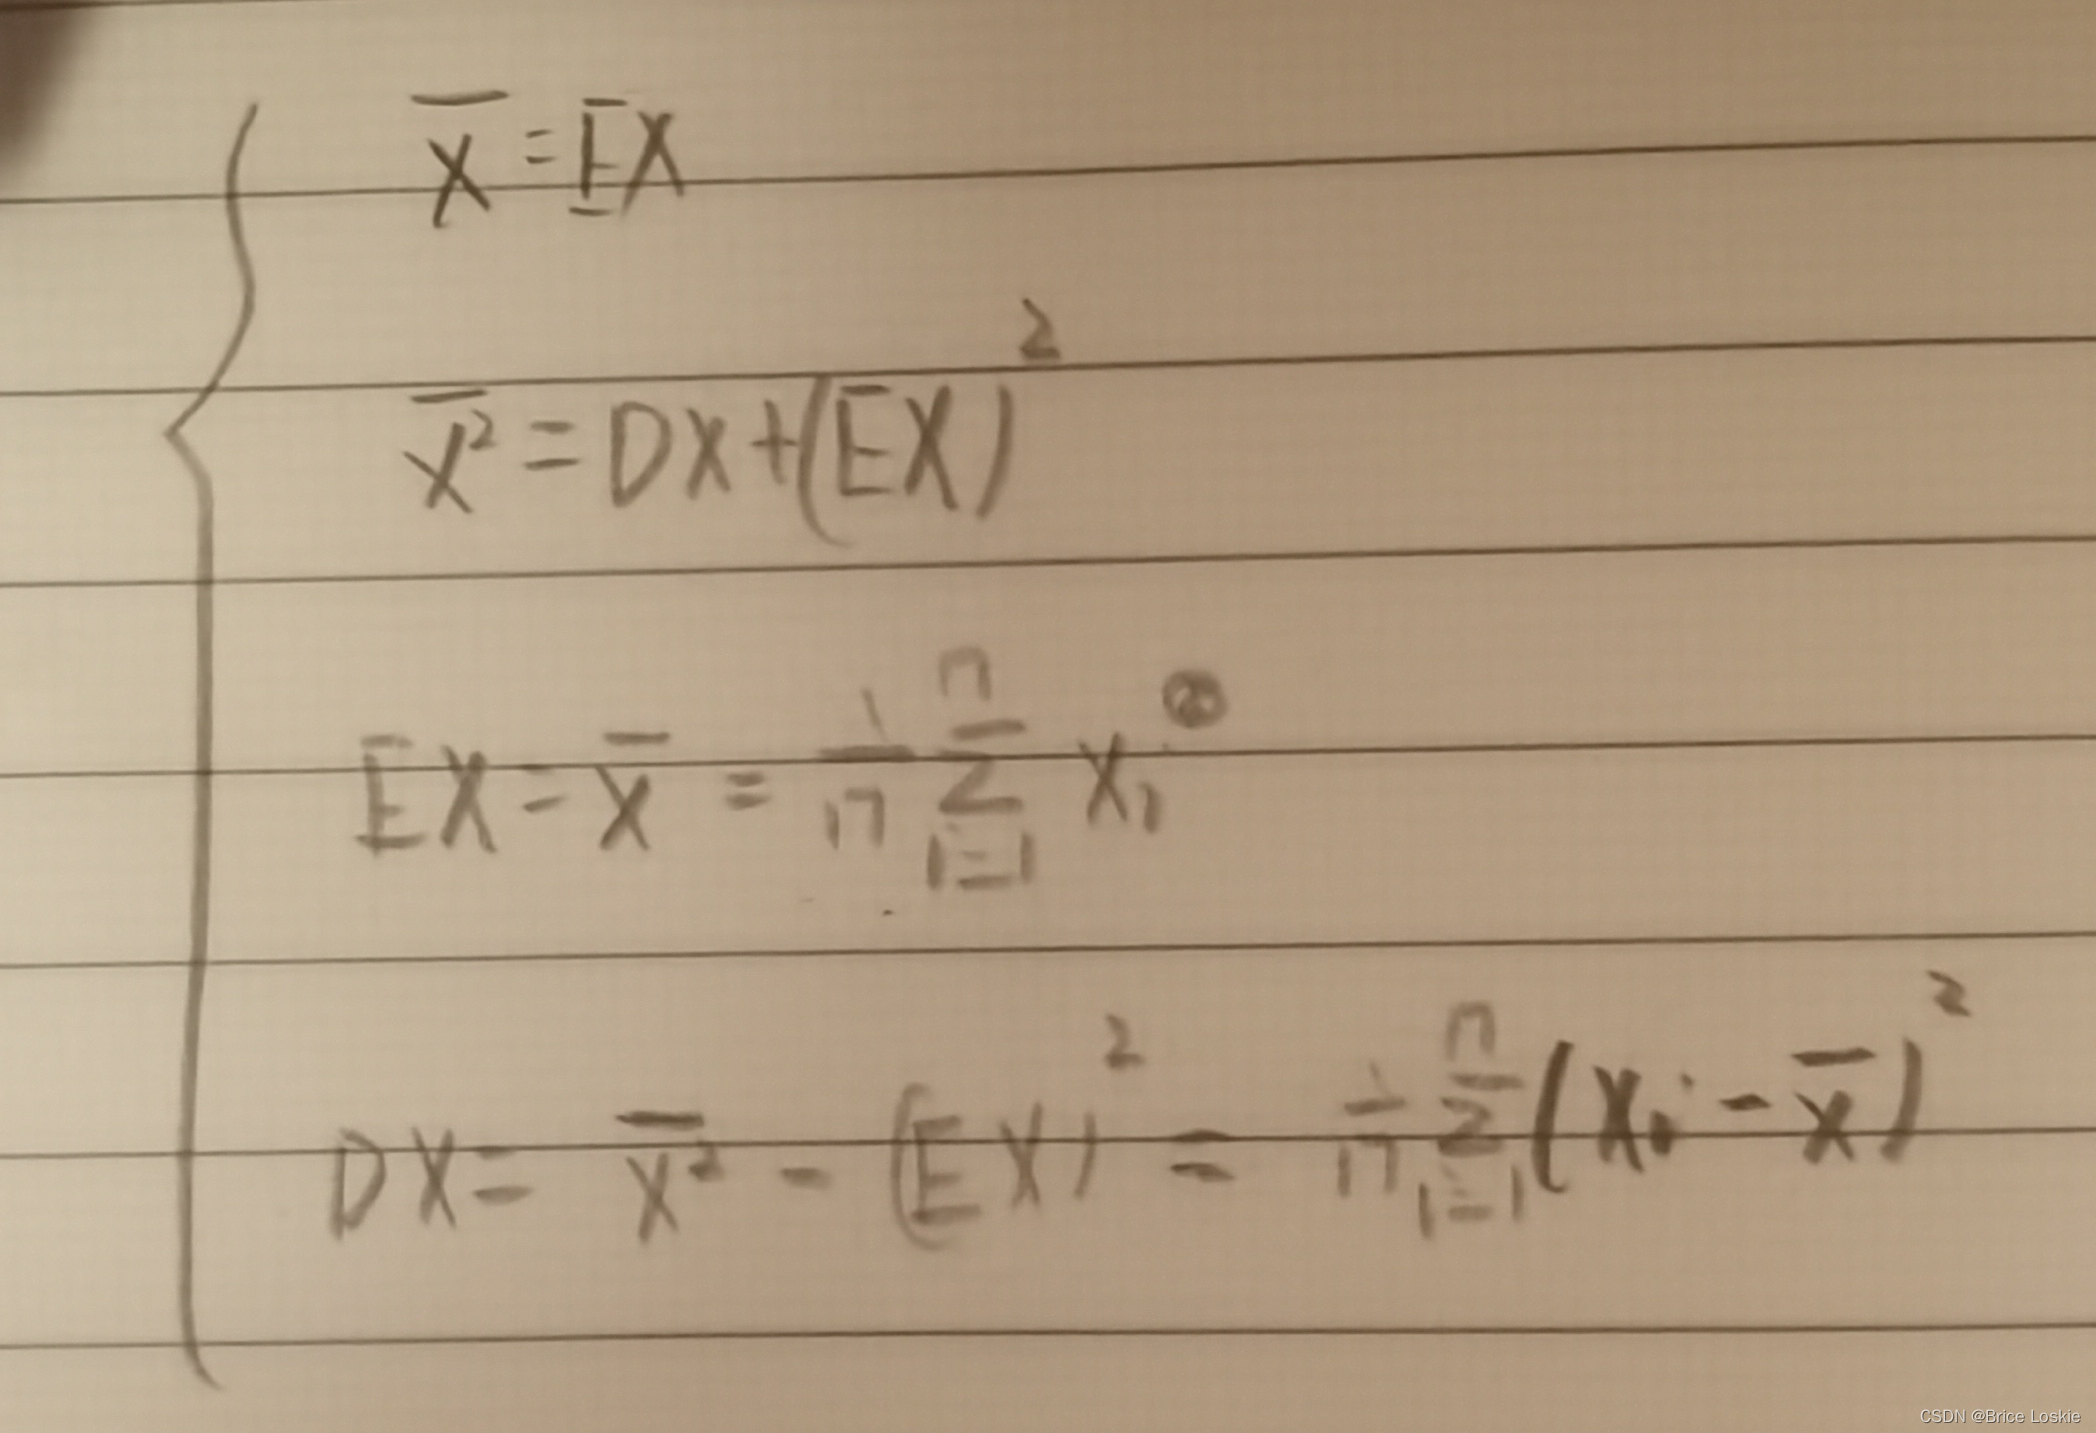 X̄ = EX
X̄² = DX + (EX)²
EX = X̄ = 1/n ∑ᵢ₌₁ⁿ Xᵢ
DX = X̄² - (EX)² = 1/n ∑ᵢ₌₁ⁿ (Xᵢ - X̄)²
CSDN @Brice Loskie